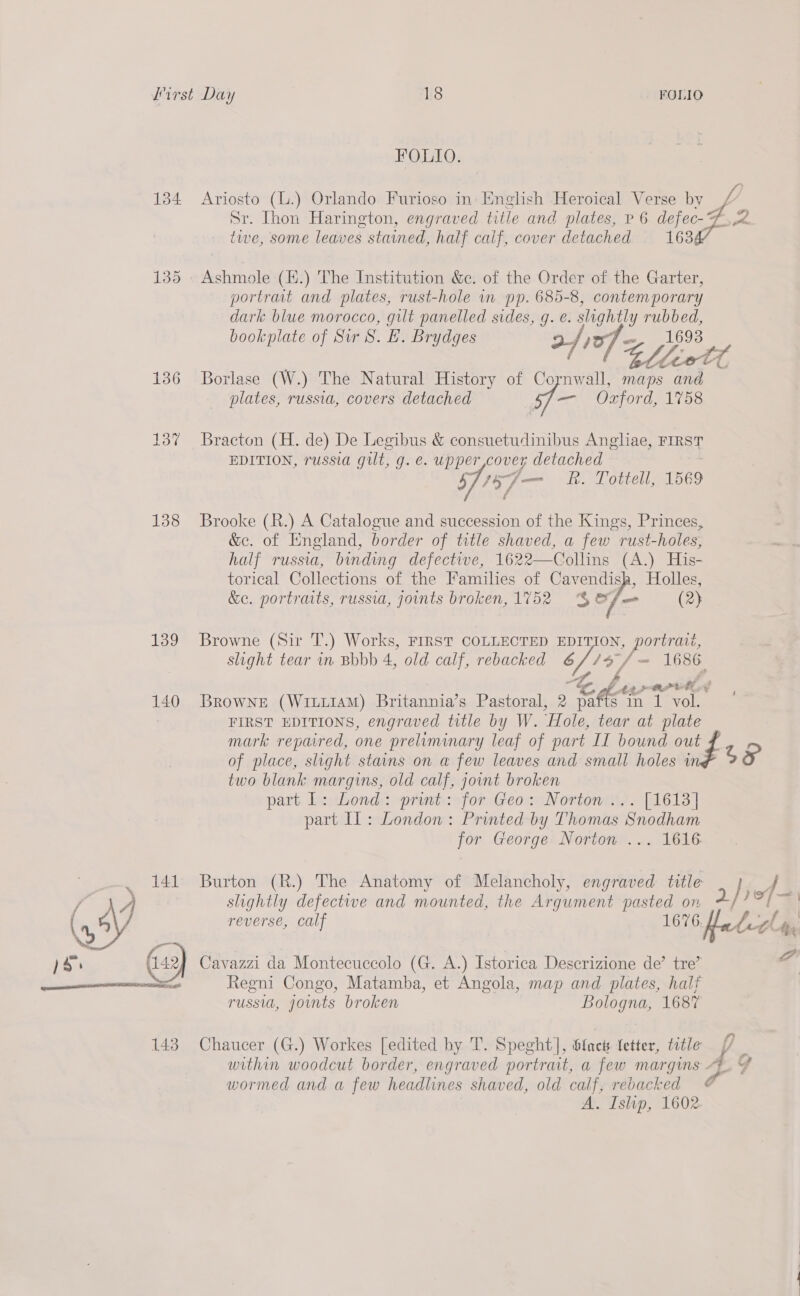 First Day 18 FOLIO
FOLIO.
134 Ariosto (L.) Orlando Furioso in English Heroical Verse by
Sr. Ihon Harington, engraved title and plates, P 6 defec-
tive, some leaves stained, half calf, cover detached 1634
135 Ashmole (E.) The Institution &c. of the Order of the Garter,
portrait and plates, rust-hole in pp. 685-8, contemporary
dark blue morocco, gilt panelled sides, g. e. slightly rubbed,
bookplate of Sir S. E. Brydges 2/10/- 1693
136 Borlase (W.) The Natural History of Cornwall, maps and
plates, russia, covers detached 5/- Oxford, 1758
137 Bracton (H. de) De Legibus & consuetudinibus Angliae, FIRST
EDITION, russia gilt, g. e. upper cover detached
5/15/- R. Tottell, 1569
138 Brooke (R.) A Catalogue and succession of the Kings, Princes,
&c. of England, border of title shaved, a few rust-holes,
half russia, binding defective, 1622—Collins (A.) His-
torical Collections of the Families of Cavendish, Holles,
&c. portraits, russia, joints broken, 1752 (2)
139 Browne (Sir T.) Works, FIRST COLLECTED EDITION, portrait,
slight tear in Bbbb 4, old calf, rebacked 6/15/- 1686
140 BROWNE (WILLIAM) Britannia's Pastoral, 2 parts in 1 vol.
FIRST EDITIONS, engraved title by W. Hole, tear at plate
mark repaired, one preliminary leaf of part II bound out
of place, slight stains on a few leaves and small holes in £38
two blank margins, old calf, joint broken
part I: Lond: print: for Geo: Norton ... [1613]
part II: London: Printed by Thomas Snodham
for George Norton ... 1616
141 Burton (R.) The Anatomy of Melancholy, engraved title
slightly defective and mounted, the Argument pasted on 2/10/-
reverse, calf 1676
142 Cavazzi da Montecuccolo (G. A.) Istorica Descrizione de' tre'
Regni Congo, Matamba, et Angola, map and plates, half
russia, joints broken Bologna, 1687
143 Chaucer (G.) Workes [edited by T. Speght], black letter, title
within woodcut border, engraved portrait, a few margins
wormed and a few headlines shaved, old calf, rebacked
A. Islip, 1602